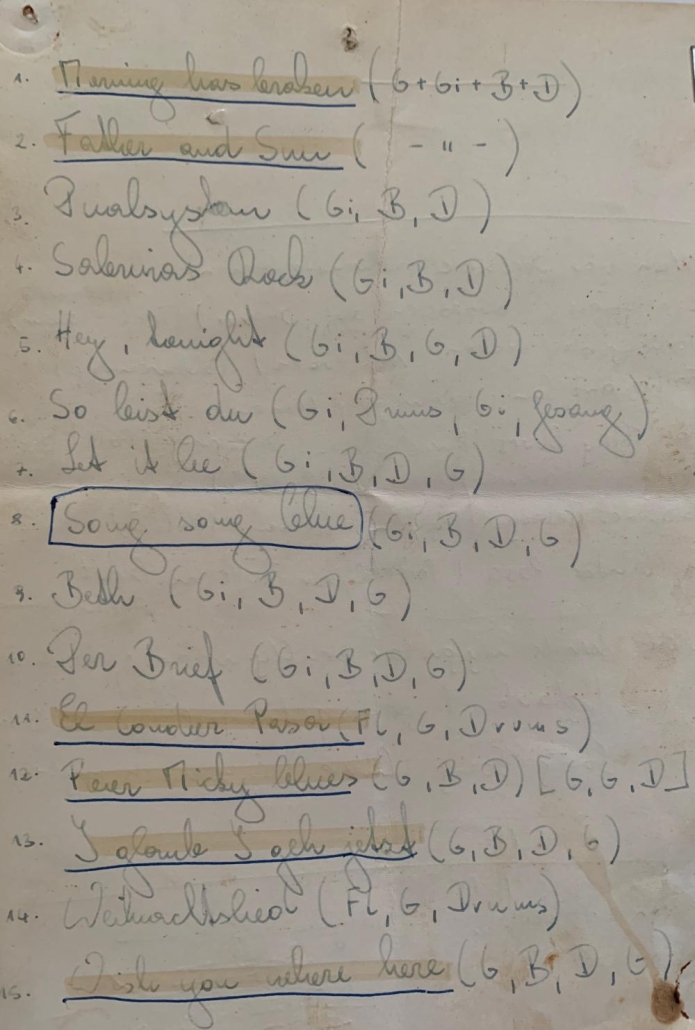 1. Morning has broken (G+Gi+B+D)
2. Father and Sun ( - " - )
3. Dualsystem (Gi, B, D)
4. Sabrinas Rock (Gi, B, D)
5. Hey, tonight (Gi, B, G, D)
6. So bist du (Gi, Drums, Gi, Gesang)
7. Let it be (Gi, B, D, G)
8. Song song blue (Gi, B, D, G)
9. Beth (Gi, B, D, G)
10. Der Brief (Gi, B, D, G)
11. El Condor Pasa (FL, G, Drums)
12. Peter Micky blues (G, B, D) [G, G, D]
13. I glaub I geh jetzt (G, B, D, G)
14. Weihnachtslied (FL, G, Drums)
15. Wish you where here (G, B, D, G)